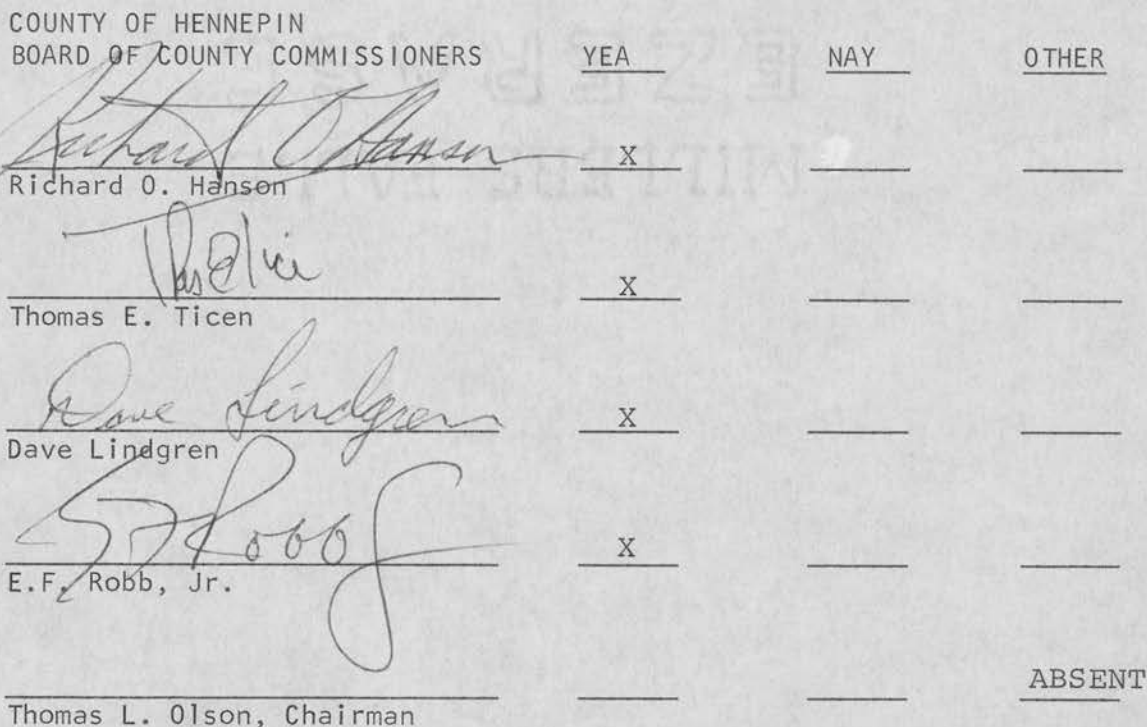 COUNTY OF HENNEPIN
BOARD OF COUNTY COMMISSIONERS YEA NAY OTHER
Richard O Hanson X
Richard O. Hanson
Thos E Ticen X
Thomas E. Ticen
Dave Lindgren X
Dave Lindgren
E F Robb Jr X
E.F. Robb, Jr.
ABSENT
Thomas L. Olson, Chairman